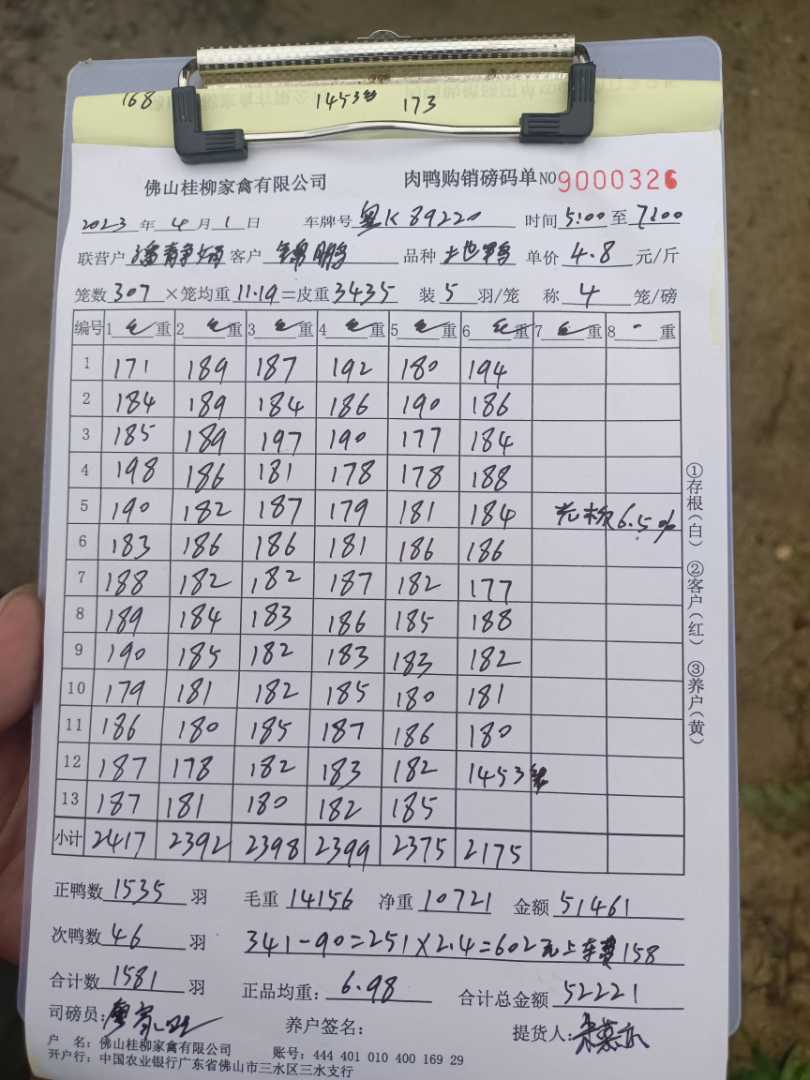 168 1453笼 173
佛山桂柳家禽有限公司 肉鸭购销磅码单 NO 9000326
2023 年 4 月 1 日 车牌号 粤K 89220 时间 5:00 至 7:00
联营户 客户 锦鹏 品种 土地鸭 单价 4.8 元/斤
笼数 307 ×笼均重 11.19 =皮重 3435 装 5 羽/笼 称 4 笼/磅
编号 1 毛 重 2 毛 重 3 毛 重 4 毛 重 5 毛 重 6 毛 重 7 毛 重 8 重
1 171 189 187 192 180 194
2 184 189 184 186 190 186
3 185 189 197 190 177 184
4 198 186 181 178 178 188
5 190 182 187 179 181 184 6.5%
6 183 186 186 181 186 186
7 188 182 182 187 182 177
8 189 184 183 186 185 188
9 190 185 182 183 183 182
10 179 181 182 185 180 181
11 186 180 185 187 186 180
12 187 178 182 183 182 1453笼
13 187 181 180 182 185
小计 2417 2392 2398 2399 2375 2175
①存根(白) ②客户(红) ③养户(黄)
正鸭数 1535 羽 毛重 14156 净重 10721 金额 51461
次鸭数 46 羽 341-90=251×2.4=602元 上车费158
合计数 1581 羽 正品均重: 6.98 合计总金额 52221
司磅员: 养户签名: 提货人:
户 名: 佛山桂柳家禽有限公司 账号: 444 401 010 400 169 29
开户行: 中国农业银行广东省佛山市三水区三水支行